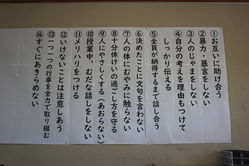 ①お互いに助け合う
②暴力・暴言をしない
③人のじゃまをしない
④自分の考えを理由もつけて
しっかり伝える
⑤全員が納得するまで話し合う
⑥決めたことに文句を言わない
⑦人の体にむやみに触らない
⑧十分休けいの過ごし方を守る
⑨人にやさしくする（あおらない）
⑩授業中、むだな話しをしない
⑪メリハリをつける
⑫いけないことは注意しあう
⑬一つ一つの行事を全力で取り組む
⑭すぐにあきらめない